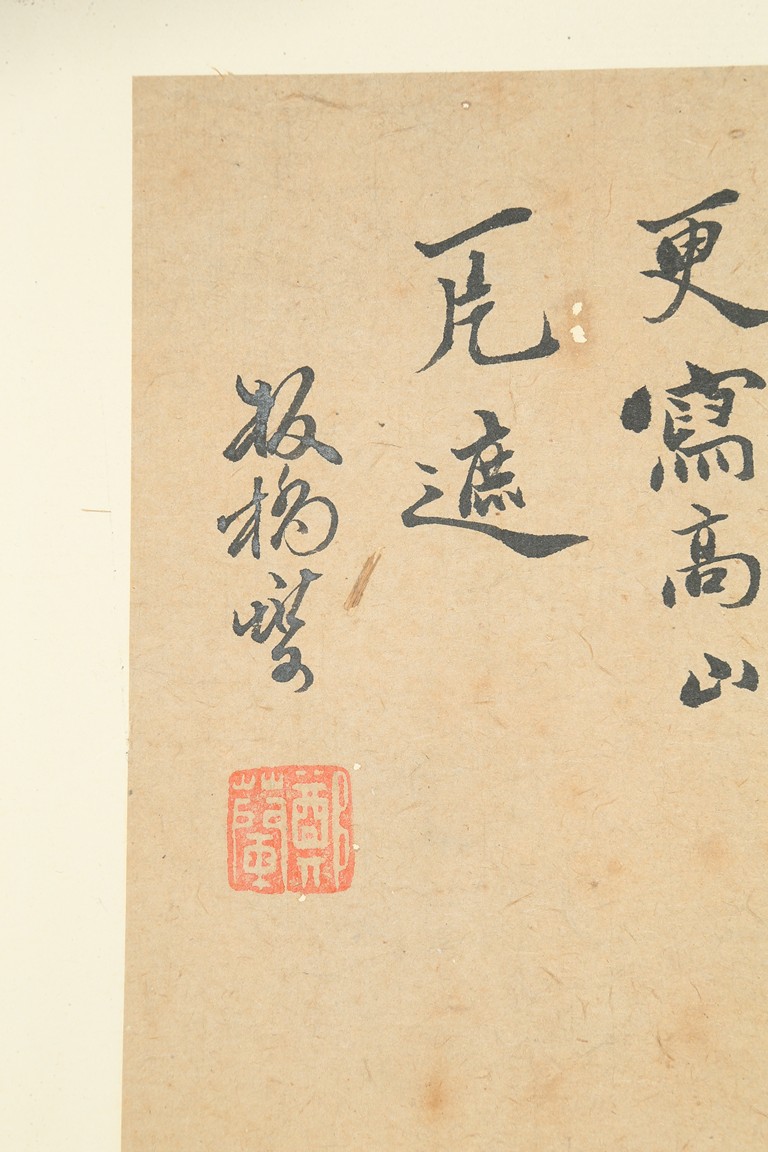 更寫高山
一片遮
板橋燮
鄭蘭